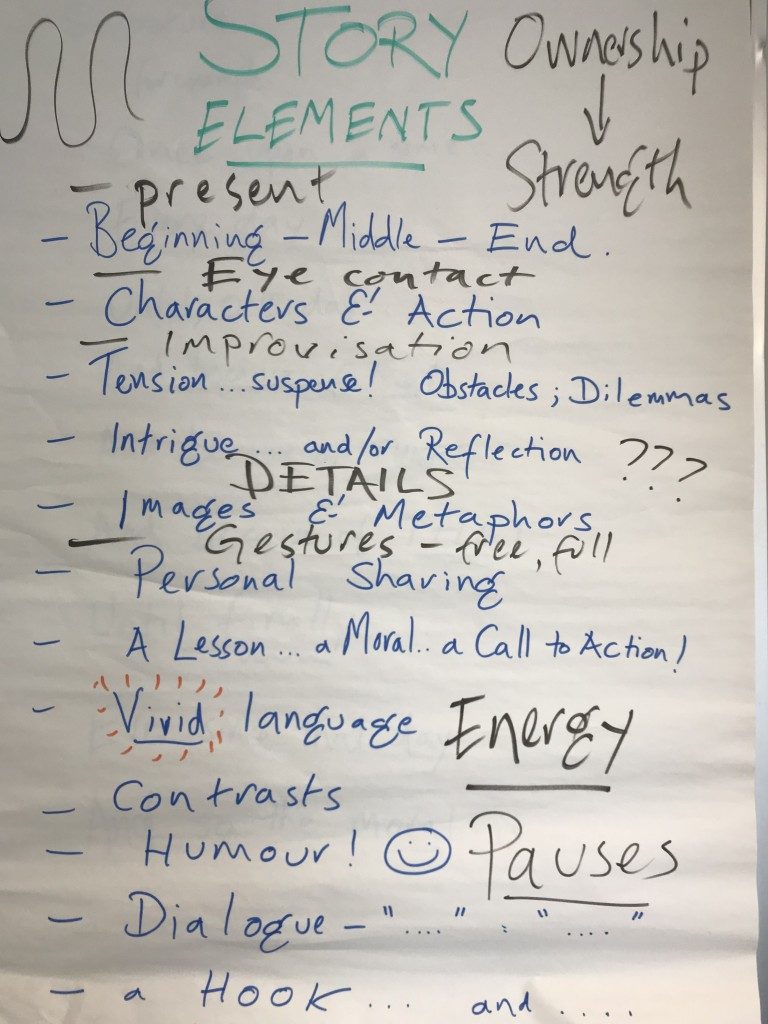 STORY
ELEMENTS
Ownership
Strength
- present
- Beginning - Middle - End.
- Eye contact
- Characters & Action
- Improvisation
- Tension...suspense! Obstacles; Dilemmas
- Intrigue... and/or Reflection ???
DETAILS
- Images & Metaphors
- Gestures - free, full
- Personal Sharing
- A Lesson... a Moral.. a Call to Action!
- Vivid language
Energy
- Contrasts
- Humour!
Pauses
- Dialogue - "...." : "...."
- a HOOK... and....